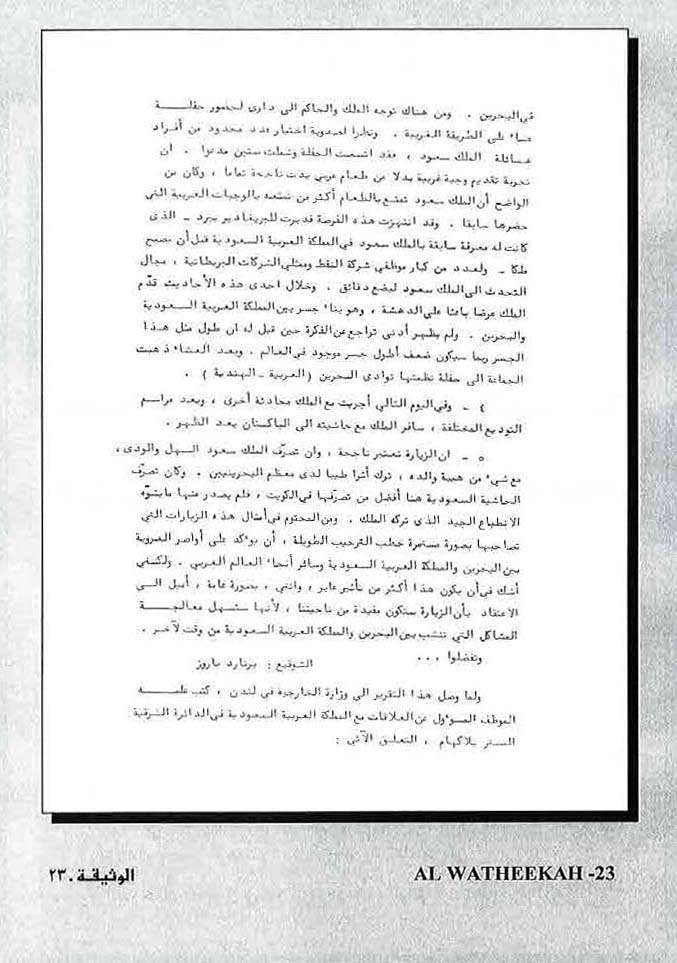 في البحرين . ومن هناك توجه الملك والحاكم الى دارى لحضور حفلــــة
عشاء على الطريقة الغربية . ونظرا لصعوبة اختيار عدد محدود من أفراد
عـــائلة الملك سعود ، فقد اتسعت الحفلة وشملت ستين مدعوا . ان
تجربة تقديم وجبة غربية بدلا من طعام عربي بدت ناجحة تماما ، وكان من
الواضح أن الملك سعود تمتع بالطعام أكثر من تمتعه بالوجبات العربية التي
حضرها سابقا . وقد انتهزت هذه الفرصة فدبرت للبريغادير بيرد – الذى
كانت له معرفة سابقة بالملك سعود في المملكة العربية السعودية قبل أن يصبح
ملكا – ولعدد من كبار موظفي شركة النفط وممثلي الشركات البريطانية ، مجال
التحدث الى الملك سعود لبضع دقائق . وخلال احدى هذه الأحاديث قدّم
الملك عرضا باعثا على الدهشة ، وهو بناء جسر بين المملكة العربية السعودية
والبحرين . ولم يظهر أدنى تراجع عن الفكرة حين قيل له ان طول مثل هـذا
الجسر ربما سيكون ضعف أطول جسر موجود في العالم . وبعد العشاء ذهبت
الجماعة الى حفلة نظمتها نوادى البحرين ( العربية – الهندية ) .
٤ – وفي اليوم التالي أجريت مع الملك محادثة أخرى ، وبعد مراسم
التوديع المختلفة ، سافر الملك مع حاشيته الى الباكستان بعد الظهر .
٥ – ان الزيارة تعتبر ناجحة ، وان تصرّف الملك سعود السهل والودى ،
مع شيء من هيبة والده ، ترك أثرا طيبا لدى معظم البحرينيين . وكان تصرّف
الحاشية السعودية هنا أفضل من تصرّفها في الكويت ، فلم يصدر منها ما يشوّه
الانطباع الجيد الذى تركه الملك . ومن المحتوم في أمثال هذه الزيارات التي
تصاحبها بصورة مستمرة خطب الترحيب الطويلة ، أن يؤكد على أواصر العروبة
بين البحرين والمملكة العربية السعودية وسائر أنحاء العالم العربي . ولكنني
أشك في أن يكون هذا أكثر من تأثير عابر ، وانني ، بصورة عامة ، أميل الـى
الاعتقاد بأن الزيارة ستكون مفيدة من ناحيتنا ، لأنها ستسهل معالجــــة
المشاكل التي تنشب بين البحرين والمملكة العربية السعودية من وقت لآخر .
وتفضلوا ...
التوقيع : برنارد باروز
ولما وصل هذا التقرير الى وزارة الخارجية في لندن ، كتب عليـــه
الموظف المسؤول عن العلاقات مع المملكة العربية السعودية في الدائرة الشرقية
المستر بلاكهام ، التعليق الآتي :
الوثيقـة . ٢٣
AL WATHEEKAH -23